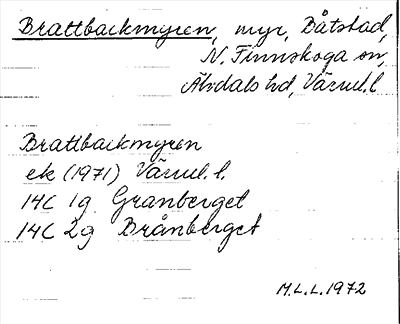 Brattbackmyren, myr, Båtstad,
N. Finnskoga sn,
Älvdals hd, Värml. l
Brattbackmyren
ek (1971) Värml. l.
14C 1g Granberget
14C 2g Brånberget
M.L.L. 1972